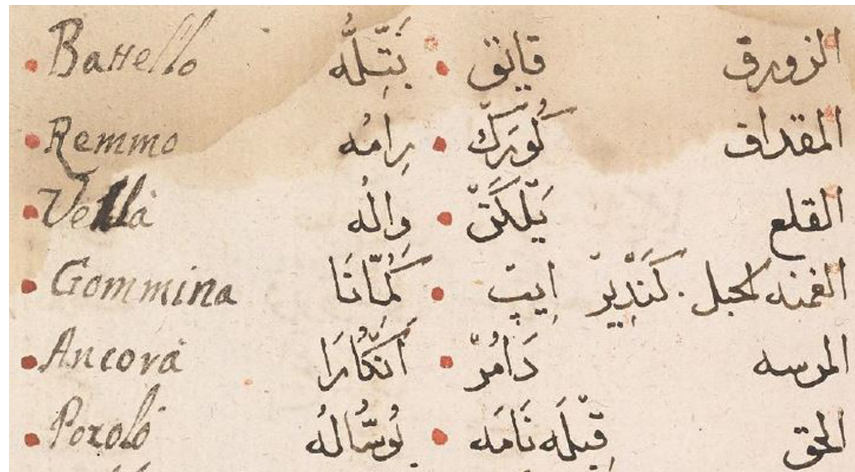 Battello بَتِّلُّه قايق الزورق
Remmo رِامُه كُورَكْ المقداف
Vella وِالُه يَلْكَنْ القلع
Gommina كُمِّنَا اِيپْ كَنْدِيرْ الحبل
Ancora اَنكُّارَا دَامُرْ المرسه
قِبْلَه نَامَه الحق